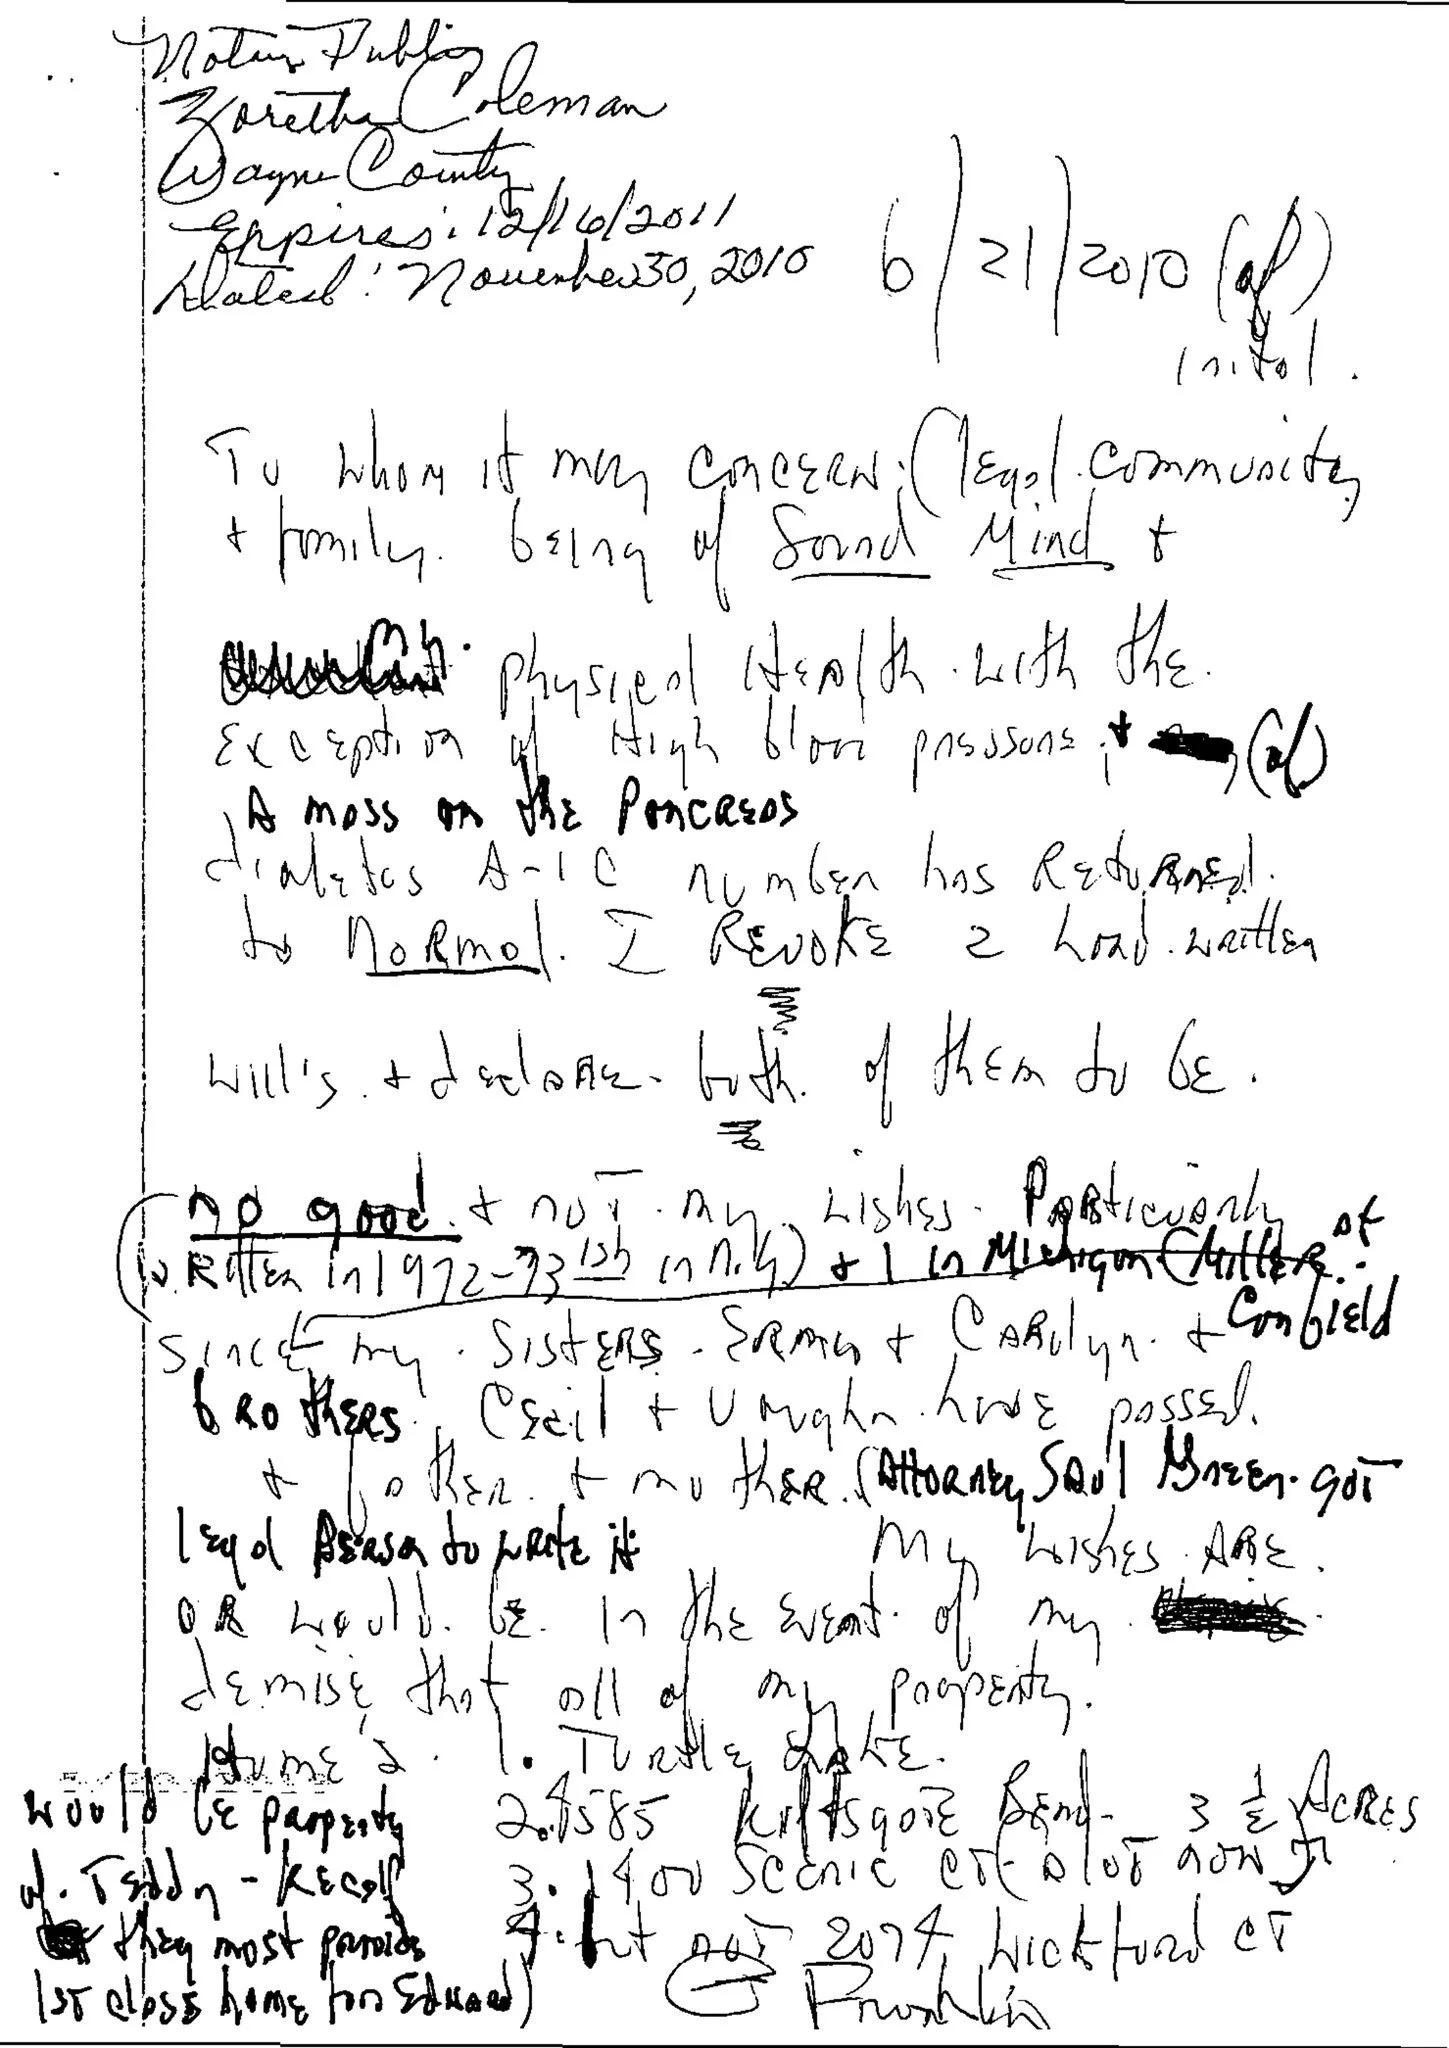 Notary Public
Zoretha Coleman
Wayne County
Expires: 12/16/2011
Dated: November 30, 2010
6/21/2010 (af)
inital.
To whom it may concern: (legal community
+ family. being of Sound Mind +
my. physical Health with the.
exception of High blood pressure, + (af)
A mass on the Pancreas
diabetes A-1C number has Returned.
to Normal. I REVOKE 2 hand.written
will's. + declare. both. of them to be.
no good. + not my wishes. Particularly
(written in 1972-73 ish in N.Y) + 1 in Michigan (Miller. at
Canfield
Since my. Sisters. Erma + Carolyn. +
brothers. Cecil + Vaughn. have passed.
+ father. + mother. (Attorney Saul Green. got
legal Person to write it
My wishes. ARE.
OR would. be. in the event. of my.
demise that all of my property.
Home's. 1. Turtle Lake.
would be property 2. 4585 Bend- 3 1/2 Acres
of. Teddy - Kecalf 3. 1400 Scenic CT (A lot now)
they most provide 4. but not 2074 Wickford CT
1st class home for Edward) Franklin